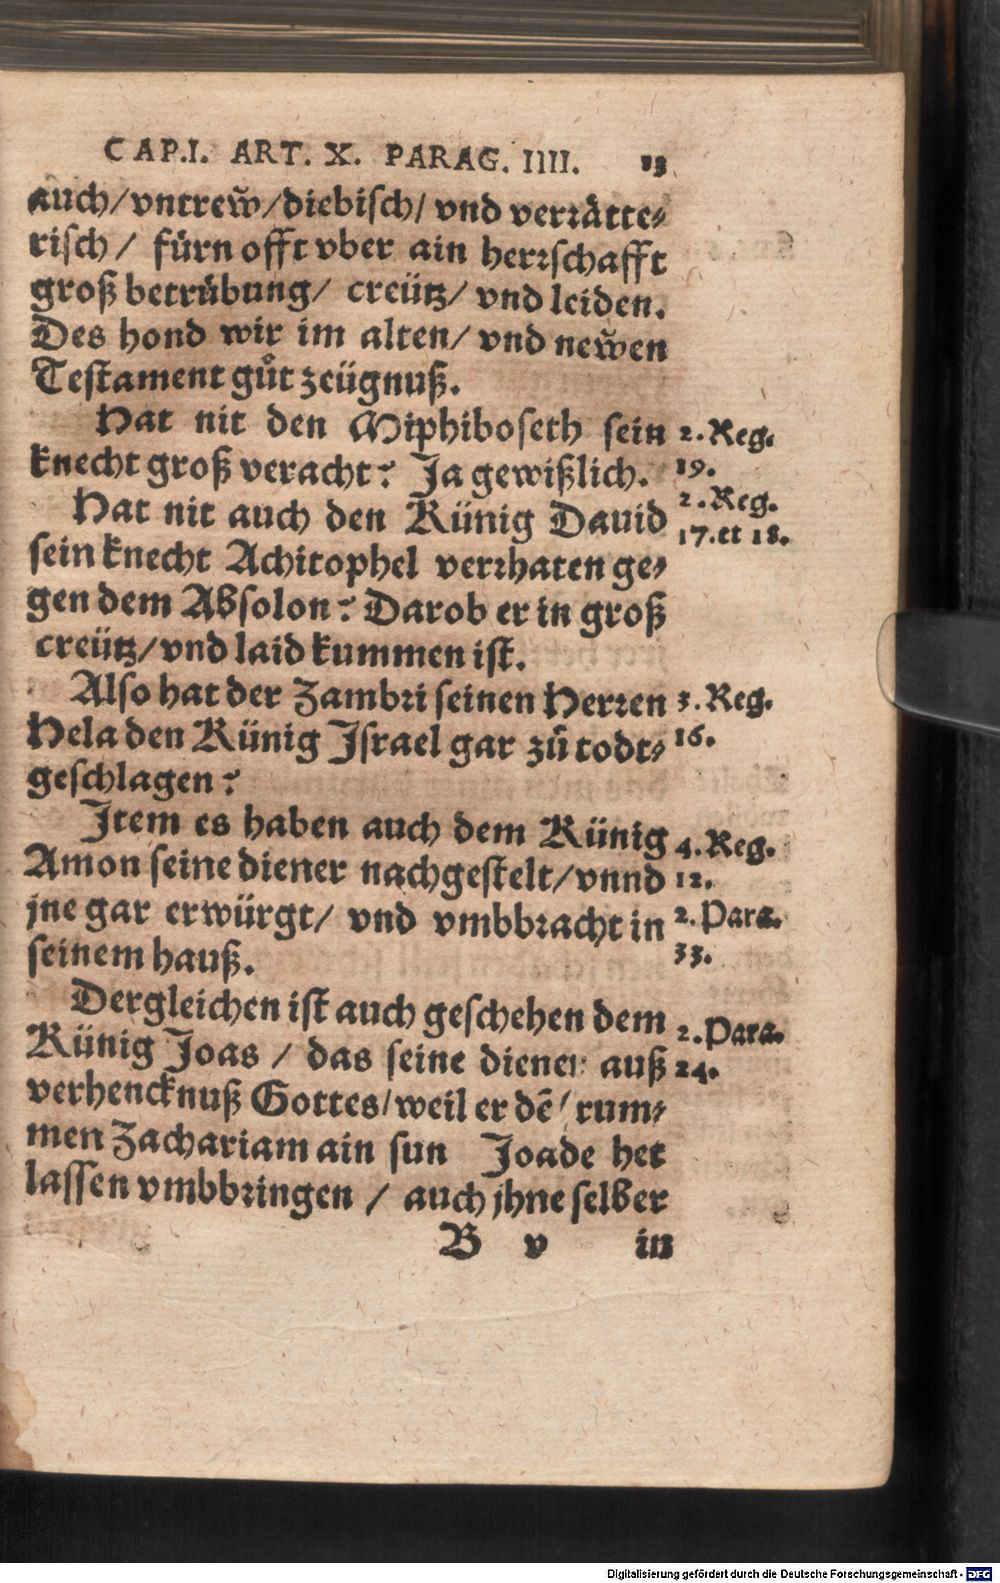 CAP. I. ART. X. PARAG. IIII. 13
auch/ vntreẅ/ diebisch/ vnd verrätte-
risch/ fürn offt vber ain herrschafft
groß betrübung/ creütz/ vnd leiden.
Des hond wir im alten/ vnd neẅen
Testament gůt zeügnuß.
Hat nit den Miphiboseth sein
knecht groß veracht? Ja gewißlich.
2. Reg.
19.
Hat nit auch den Künig Dauid
sein knecht Achitophel verrhaten ge-
gen dem Absolon? Darob er in groß
creütz/ vnd laid kummen ist.
2. Reg.
17. et 18.
Also hat der Zambri seinen Herren
Hela den Künig Israel gar zů todt-
geschlagen?
3. Reg.
16.
Item es haben auch dem Künig
Amon seine diener nachgestelt/ vnnd
jne gar erwürgt/ vnd vmbbracht in
seinem hauß.
4. Reg.
12.
2. Para.
33.
Dergleichen ist auch geschehen dem
Künig Joas / das seine diener auß
verhencknuß Gottes/ weil er dē frum-
men Zachariam ain sun Joade het
lassen vmbbringen / auch jhne selber
2. Para.
24.
B v in
Digitalisierung gefördert durch die Deutsche Forschungsgemeinschaft - DFG